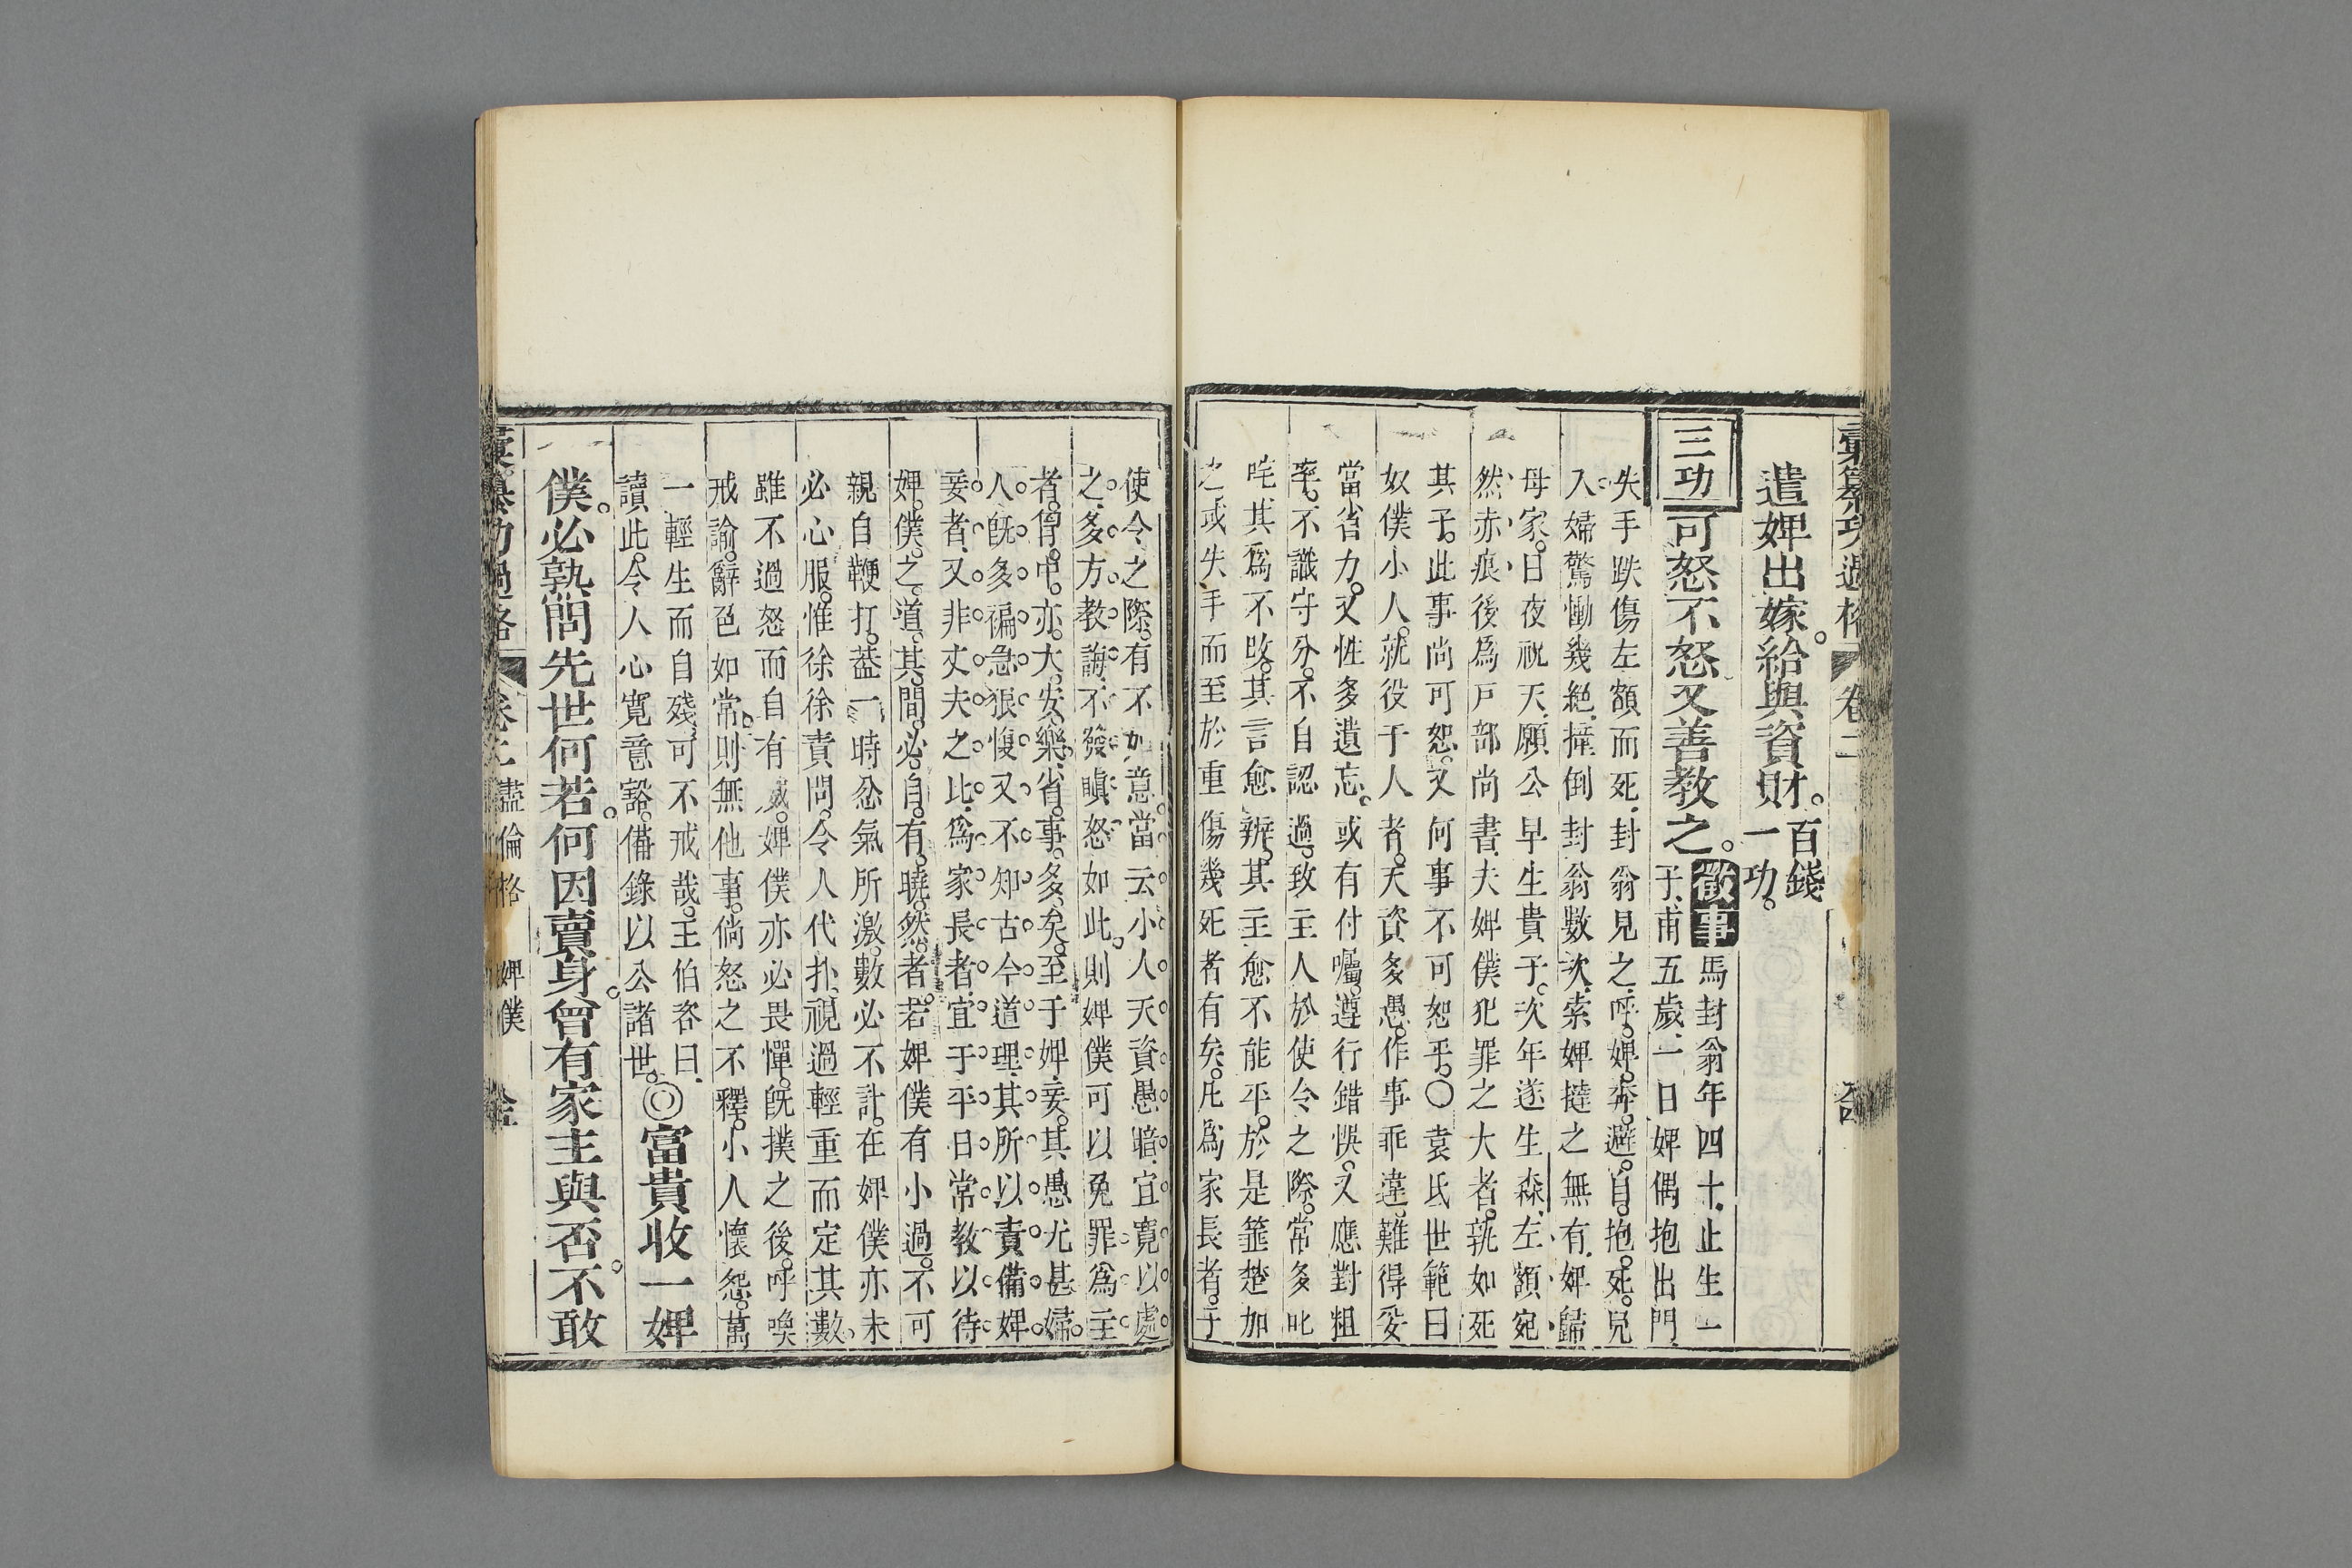 彙纂功過格 卷二
遣婢出嫁。給與資財。百錢一功。
三功 可怒不怒又善教之。徵事 馬封翁年四十。止生一
子。甫五歲。一日婢偶抱出門。
失手跌傷左額而死。封翁見之。呼婢奔避。自抱死兒
入。婦驚慟幾絕。撞倒封翁數次。索婢撻之無有。婢歸
母家。日夜祝天。願公早生貴子。次年遂生森。左額宛
然赤痕。後為戸部尚書。夫婢僕犯罪之大者。孰如死
其子。此事尚可恕。又何事不可恕乎。〇袁氏世範曰
奴僕小人。就役于人者。天資多愚。作事乖違。難得妥
當省力。又性多遺忘。或有付囑。遵行錯悞。又應對粗
率。不識守分。不自認過。致主人於使令之際。常多叱
咤其為不改。其言愈辨。其主愈不能平。於是箠楚加
之或失手而至於重傷幾死者有矣。凡為家長者。于
使令之際。有不如意。當云小人天資愚暗。宜寬以處
之。多方教誨。不發瞋怒。如此。則婢僕可以免罪。為主
者。胷中。亦大安樂。省事多矣。至于婢妾。其愚尤甚。婦
人既多褊急狠愎。又不知古今道理。其所以責備婢
妾者。又非丈夫之比。為家長者。宜于平日常教以待
婢僕之道。其間必自有曉然者。若婢僕有小過。不可
親自鞭打。葢一時忿氣所激。數必不計。在婢僕亦未
必心服。惟徐徐責問。令人代扑。視過輕重而定其數。
雖不過怒而自有威。婢僕亦必畏憚。既撲之後。呼喚
戒諭。辭色如常。則無他事。倘怒之不釋。小人懷怨。萬
一輕生而自殘。可不戒哉。王伯咨曰。
讀此。令人心寬意豁。備錄以公諸世。◎富貴收一婢
僕。必孰問先世何若。何因賣身。曾有家主與否。不敢
彙纂功過格 卷二 盡倫格 婢僕